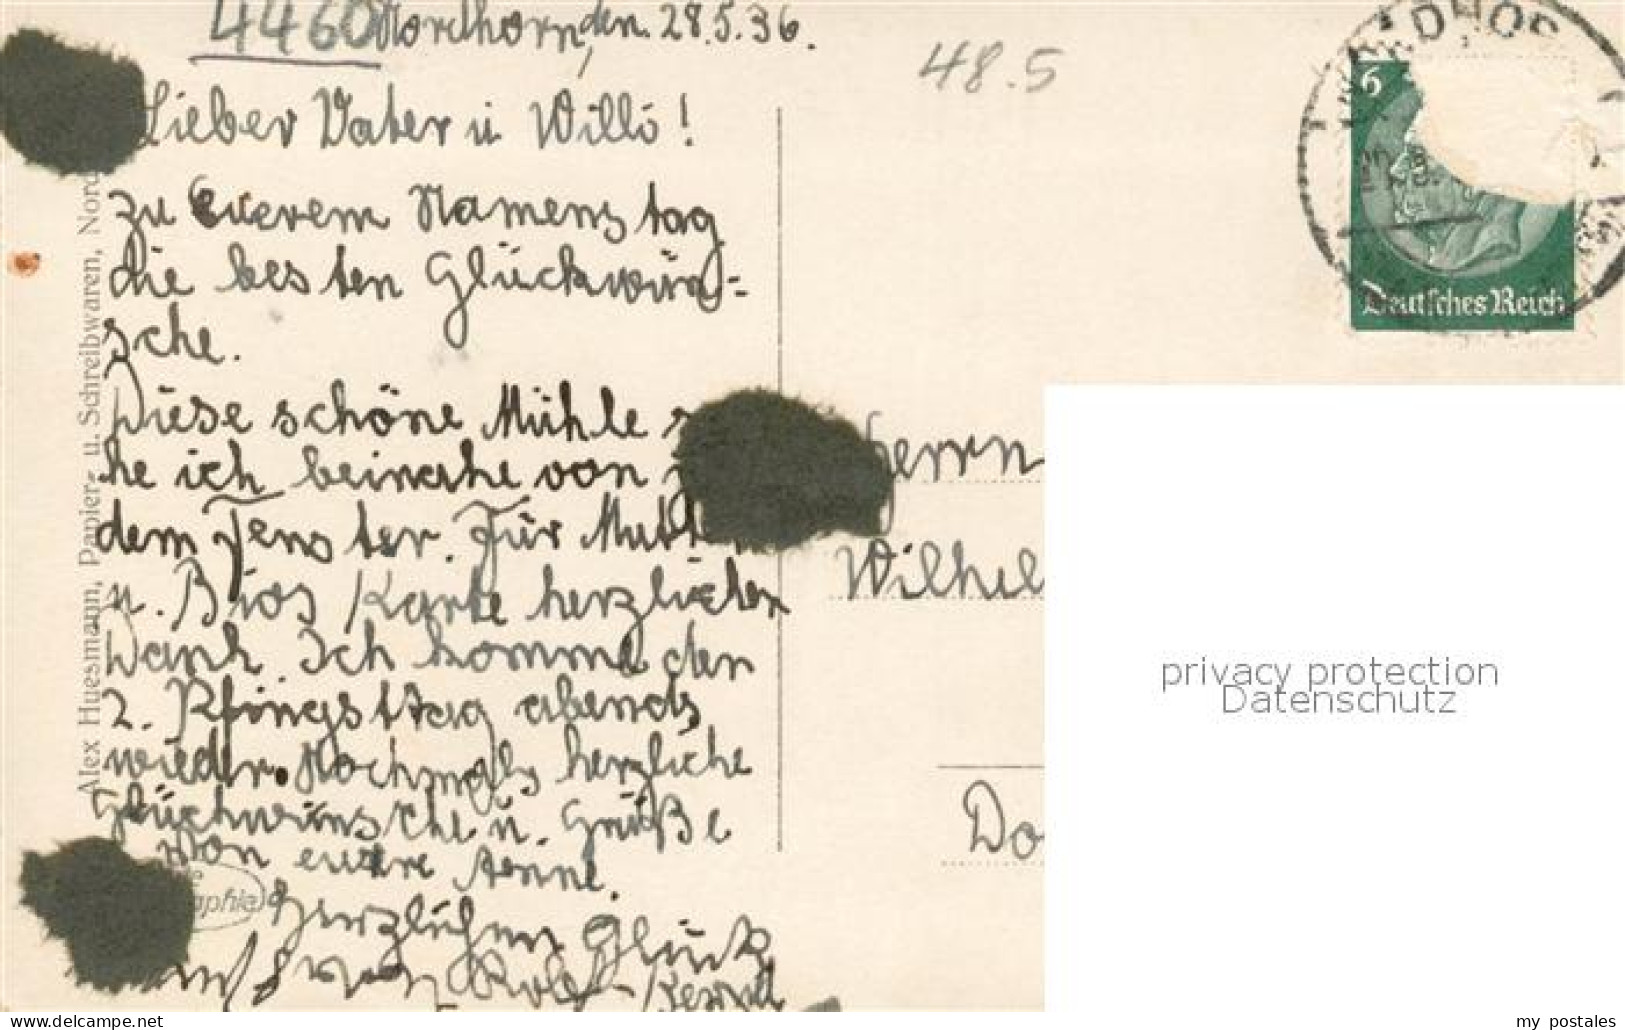 4460 Nordhorn, den 28.5.36.
48.5
Lieber Vater u Willi!
Zu Euerem Namenstag
die besten Glückwün-
sche.
Diese schöne Mühle
he ich beinahe von
dem Fenster. Für
u. Karte herzlichen
Dank. Ich komme den
2. Pfingsttag abends
wieder. Nochmals herzliche
Glückwünsche u. Grüße
von
Herzlichen Glück
Rolf
Alex Huesmann, Papier- u. Schreibwaren, Nord
6
Deutsches Reich
Herrn
Wilhel
Do
privacy protection
Datenschutz
delcampe.net
my postales